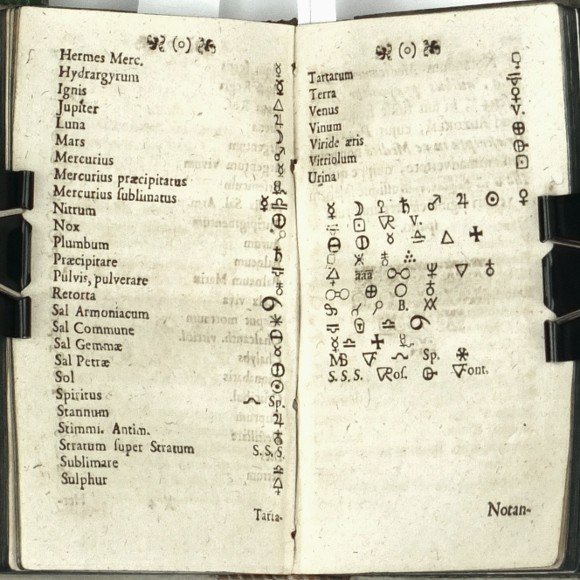 (o)
Hermes Merc. ☿
Hydrargyrum ☿
Ignis △
Jupiter ♃
Luna ☽
Mars ♂
Mercurius ☿
Mercurius præcipitatus
Mercurius sublimatus
Nitrum
Nox
Plumbum ♄
Præcipitare
Pulvis, pulverare
Retorta
Sal Armoniacum
Sal Commune
Sal Gemmæ
Sal Petræ
Sol ☉
Spiritus Sp.
Stannum ♃
Stimmi. Antim. ♁
Stratum super Stratum S.S.S.
Sublimare
Sulphur
Tarta-
(o)
Tartarum
Terra
Venus ♀
Vinum V.
Viride æris
Vitriolum
Urina
☿ ☽ ♀ ♄ ♂ ♃ ☉ ♀
V.
B.
MB Sp.
S.S.S. Ros. Font.
Notan-